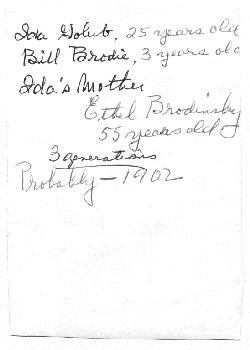 Ida Golub, 25 years old
Bill Brodie, 3 years old
Ida's Mother
Ethel Brodinsky
55 years old
3 generations
Probably - 1902